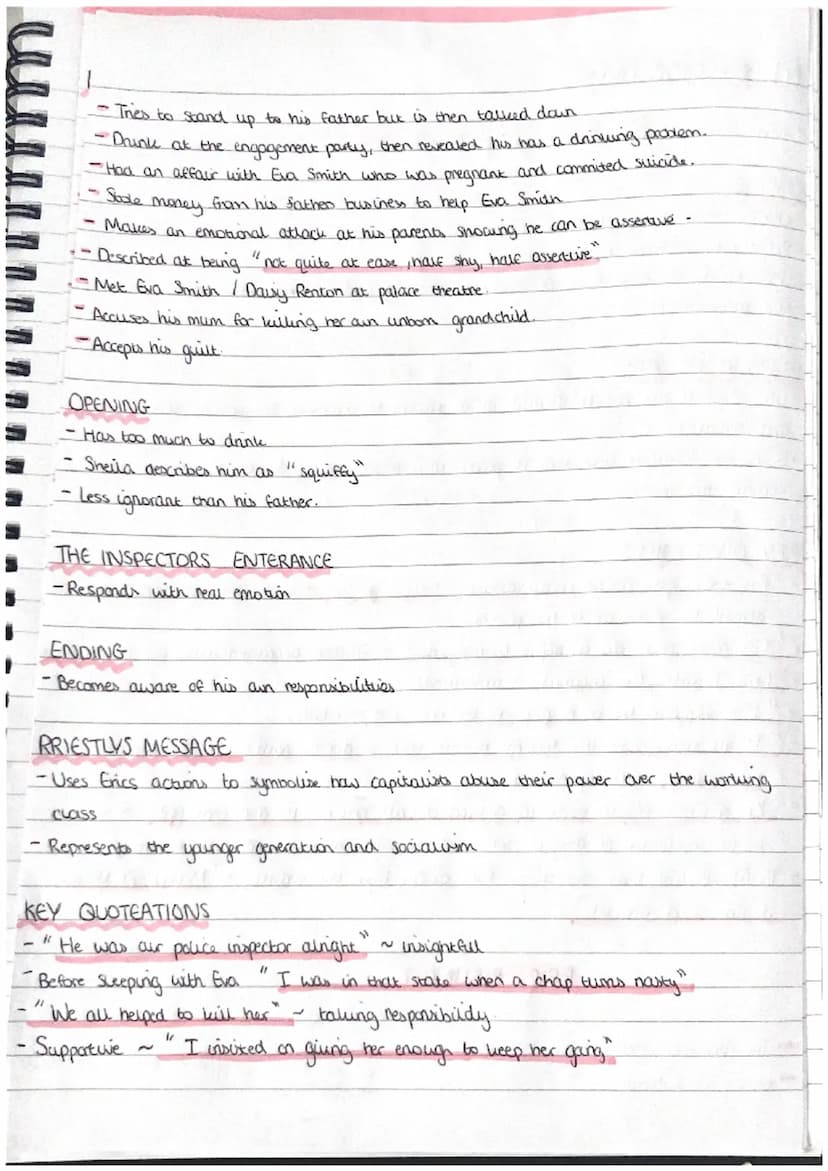 - Tries to stand up to his father but is then talked down
- Drunk at the engagement party, then revealed his has a drinking problem.
- Had an affair with Eva Smith who was pregnant and commited suicide.
- Stole money from his fathers business to help Eva Smith
- Makes an emotional attack at his parents showing he can be assertive.
- Described at being "not quite at ease, half shy, half assertive"
- Met Eva Smith / Daisy Renton at palace theatre.
- Accuses his mum for killing her own unborn grandchild.
- Accepts his guilt.
OPENING
- Has too much to drink
- Sheila describes him as "squiffy"
- Less ignorant than his father.
THE INSPECTORS ENTERANCE
- Responds with real emotion
ENDING
- Becomes aware of his own responsibilities
PRIESTLYS MESSAGE
- Uses Erics actions to symbolize how capitalists abuse their power over the working
class
- Represents the younger generation and socialism
KEY QUOTEATIONS
- "He was our police inspector alright" ~ insightful
- Before sleeping with Eva "I was in that state when a chap turns nasty"
- "We all helped to kill her" ~ taking responsibility.
- Supportive ~ "I insisted on giving her enough to keep her going"